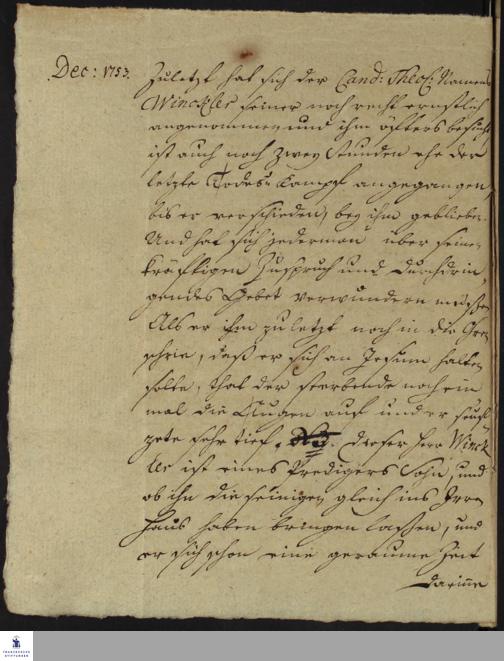 Dec: 1753.
Zuletzt hat sich der Cand: Theol: Namens
Winckler seiner noch recht ernstlich
angenommen, und ihn öfters besucht,
ist auch noch zwey Stunden ehe der
letzte Todes-Kampf angegangen,
bis er verschieden, bey ihm geblieben.
Und hat sich jederman über seinen
kräfftigen Zuspruch und durchdrin-
gendes Gebet verwundern müssen.
Als er ihm zuletzt noch in die
schrie, daß er sich an Jesum halten
solte, that der sterbende noch ein
mal die Augen auf und er seuf-
zete sehr tief. dieser Herr Winck-
ler ist eines Predigers Sohn, und
ob ihn die seinigen gleich ins Irre
Haus haben bringen lassen, und
er sich schon eine geraume Zeit
darinne
FRANCKESCHE
STIFTUNGEN